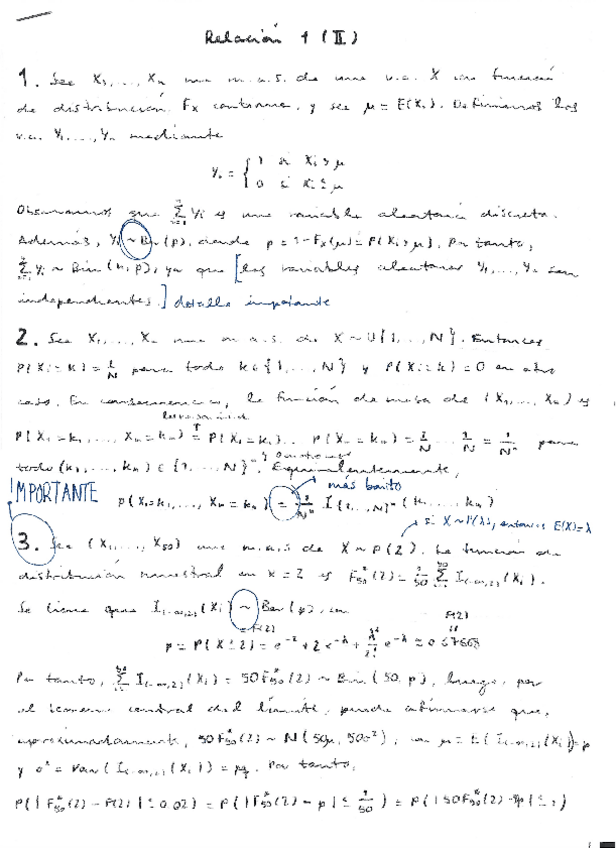 Relación 1 (II)
1. Sea X₁, ..., Xₙ una m.a.s. de una v.a. X con función
de distribución Fₓ continua, y sea μ = E(X₁). Definimos las
v.a. Y₁, ..., Yₙ mediante
Yᵢ = { 1 si Xᵢ > μ
0 si Xᵢ ≤ μ
Observamos que Σ Yᵢ es una variable aleatoria discreta.
Además, Yᵢ ~ Ber(p), donde p = 1 - Fₓ(μ) = P(Xᵢ > μ). Por tanto,
Σ Yᵢ ~ Bin(n, p), ya que [las variables aleatorias Y₁, ..., Yₙ son
independientes.] detalle importante
2. Sea X₁, ..., Xₙ una m.a.s. de X ~ U{1, ..., N}. Entonces
P(Xᵢ = k) = 1/N para todo k ∈ {1, ..., N} y P(Xᵢ = k) = 0 en otro
caso. En consecuencia, la función de masa de (X₁, ..., Xₙ) es
P(X₁ = k₁, ..., Xₙ = kₙ) = P(X₁ = k₁) ... P(Xₙ = kₙ) = 1/N ... 1/N = 1/Nⁿ para
todo (k₁, ..., kₙ) ∈ {1, ..., N}ⁿ. Equivalentemente,
más bonito
IMPORTANTE
P(X₁ = k₁, ..., Xₙ = kₙ) = 1/Nⁿ I{1, ..., N}ⁿ (k₁, ..., kₙ)
si X ~ P(λ), entonces E(X) = λ
3. Sea (X₁, ..., X₅₀) una m.a.s de X ~ P(2). La función de
distribución muestral en x = 2 es F*₅₀(2) = 1/50 Σ I(-∞,2](Xᵢ).
Se tiene que I(-∞,2](Xᵢ) ~ Ber(p), con
F(2)
p = P(X ≤ 2) = e⁻² + 2e⁻² + e⁻² ≈ 0.67668
Por tanto, Σ I(-∞,2](Xᵢ) = 50F*₅₀(2) ~ Bin(50, p), luego, por
el teorema central del límite, puede afirmarse que,
aproximadamente, 50F*₅₀(2) ~ N(50μ, 50σ²), con μ = E(I(-∞,2](Xᵢ)) = p
y σ² = Var(I(-∞,2](Xᵢ)) = pq. Por tanto,
P(|F*₅₀(2) - F(2)| ≤ 0.02) = P(|F*₅₀(2) - p| ≤ 1/50) = P(|50F*₅₀(2) - 50p| ≤ 1)